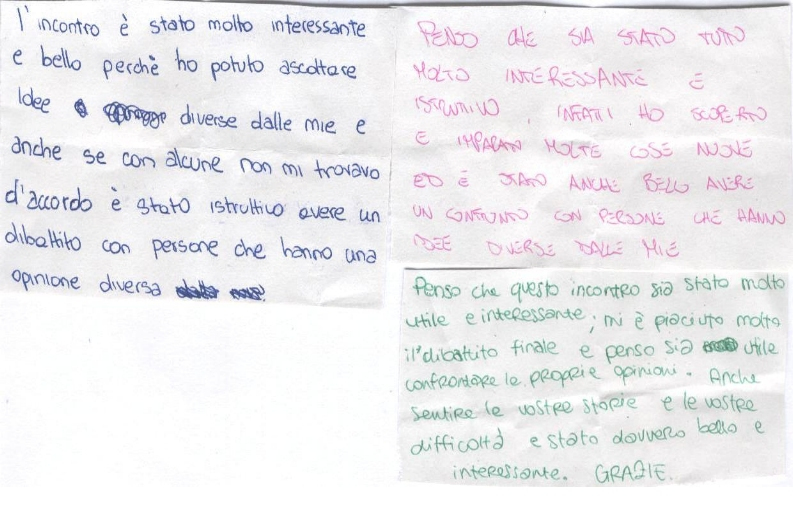 l'incontro è stato molto interessante
e bello perchè ho potuto ascoltare
Idee diverse dalle mie e
anche se con alcune non mi trovavo
d'accordo è stato istruttivo avere un
dibattito con persone che hanno una
opinione diversa
PENSO CHE SIA STATO TUTTO
MOLTO INTERESSANTE E
ISTRUTTIVO. INFATTI HO SCOPERTO
E IMPARATO MOLTE COSE NUOVE
ED È STATO ANCHE BELLO AVERE
UN CONFRONTO CON PERSONE CHE HANNO
IDEE DIVERSE DALLE MIE
Penso che questo incontro sia stato molto
utile e interessante; mi è piaciuto molto
il dibattito finale e penso sia utile
confrontare le proprie opinioni. Anche
sentire le vostre storie e le vostre
difficoltà e stato davvero bello e
interessante. GRAZIE.